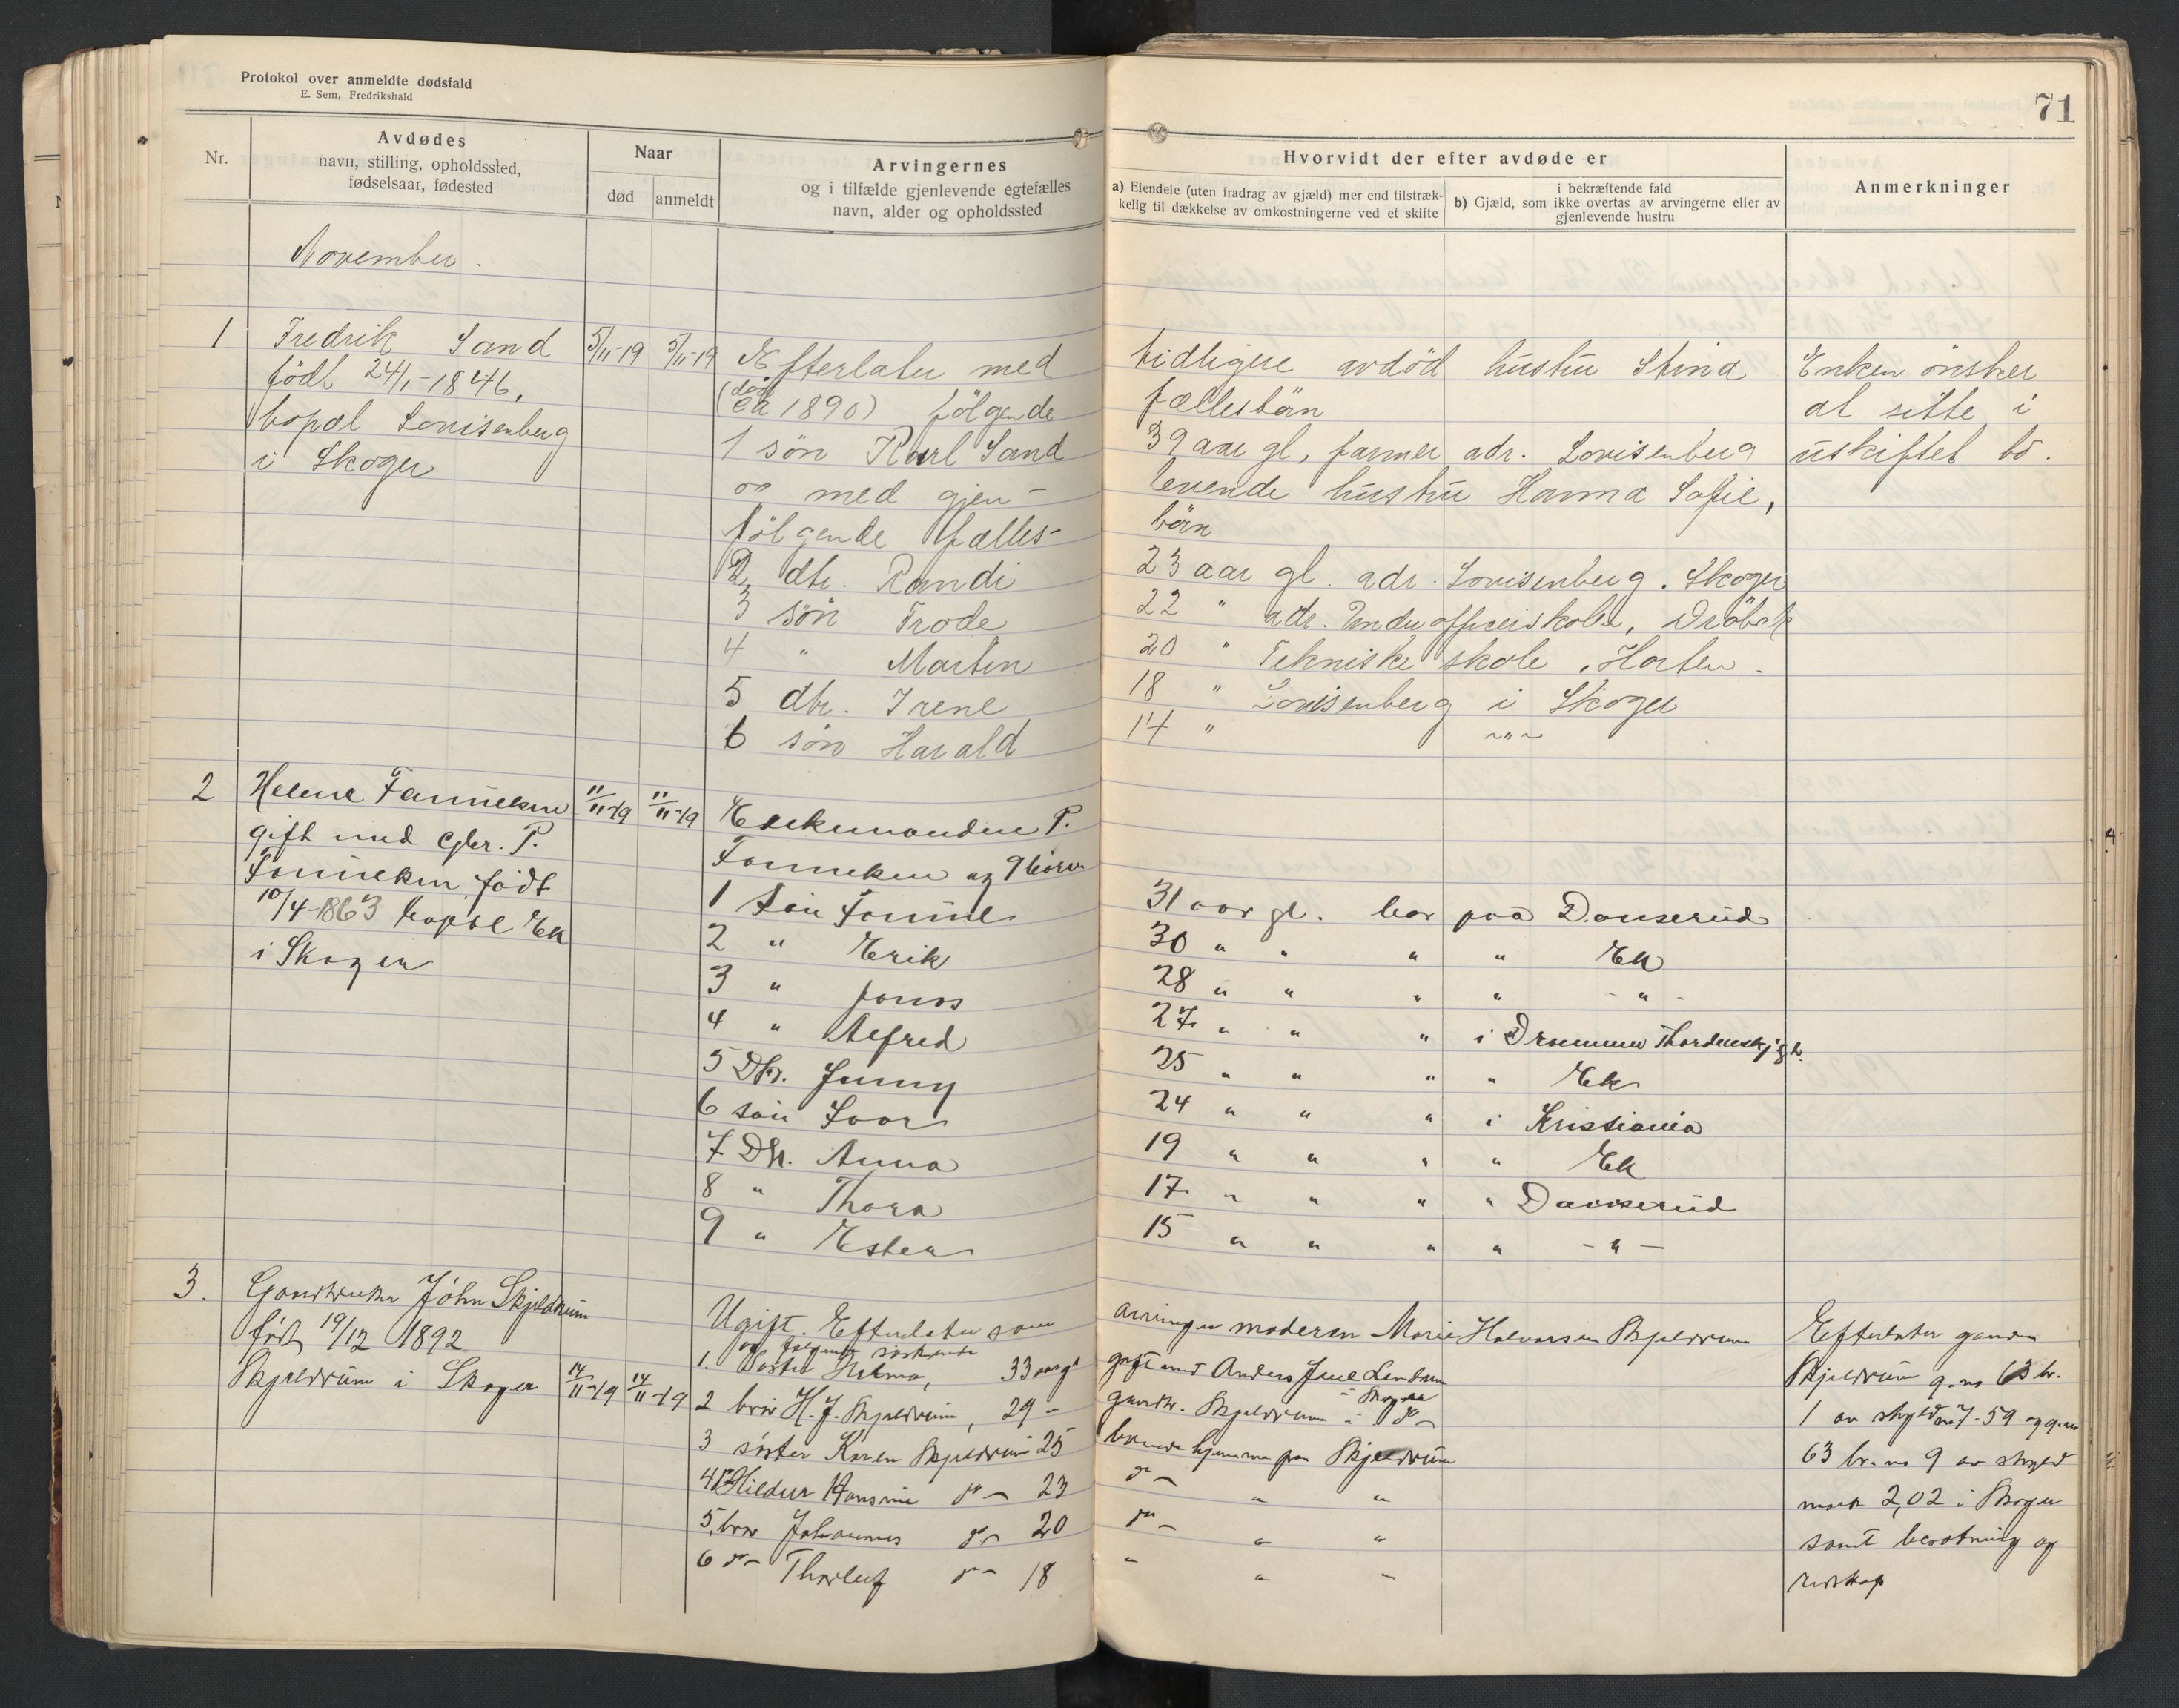 Protokol over anmeldte dødsfald
E. Sem, Fredrikshald
71
Nr.
Avdødes
navn, stilling, opholdssted,
fødselsaar, fødested
Naar
død
anmeldt
Arvingernes
og i tilfælde gjenlevende egtefælles
navn, alder og opholdssted
Hvorvidt der efter avdøde er
a) Eiendele (uten fradrag av gjæld) mer end tilstræk-
kelig til dækkelse av omkostningerne ved et skifte
i bekræftende fald
b) Gjæld, som ikke overtas av arvingerne eller av
gjenlevende hustru
Anmerkninger
November.
1 Fredrik Sand 5/11-19 5/11-19 Efterlater med tidligere avdød hustru Stina Enken ønsker
født 24/1-1846, (død ca 1890) følgende fællesbörn at sitte i
bopæl Lovisenberg 1 søn Karl Sand 39 aar gl, farmer adr. Lovisenberg uskiftet bo.
i Skoger og med gjen- levende hustru Hanna Sofie,
følgende fælles- börn
2 dtr. Randi 23 aar gl. adr. Lovisenberg. Skoger
3 søn Frode 22 " adr. Underofficerskolen, Drøbak
4 " Martin 20 " Tekniske skole, Horten.
5 dtr. Irene 18 " Lovisenberg i Skoger
6 søn Harald 14 " -"-
2 Helene 11/11-19 11/11-19 Enkemanden P.
gift med gbr. P. og 9 børn
født 1 Søn 31 aar gl. bor paa Danserud
10/4-1863 bopæl Ek 2 " Erik 30 " " " " Ek
i Skoger 3 " Jonas 28 " " " " - " -
4 " Alfred 27 " " " i Drammen
5 Dtr. Jenny 25 " " " " Ek
6 søn 24 " " " i Kristiania
7 Dtr. Anna 19 " " " " Ek
8 " Thora 17 " " " " Danserud
9 " Ester 15 " " " " - " -
3. Gaardbruker John Skjeldrum Ugift. Efterlater som arvinger moderen Marie Halvorsen Skjeldrum Efterlater gaarden
født 19/12 1892 og følgende søskende
Skjeldrum i Skoger 14/11-19 14/11-19 1. Søster Helma, 33 aar gl gift med Anders Juul i Skoger Skjeldrum g.no 63 br.
2 bror H. J. Skjeldrum, 29 - gaardbr. Skjeldrum i do - 1 av skyld 7-59 og g.no
3 søster Karen Skjeldrum 25 boende hjemme paa Skjeldrum 63 br.no 9 av skyld
4 do Hildur Hansine do - 23 do - " " mark 2,02 i Skoger
5, bror Johannes do - 20 do - " " samt besætning og
6 do - Thorleif do - 18 " " - redskap